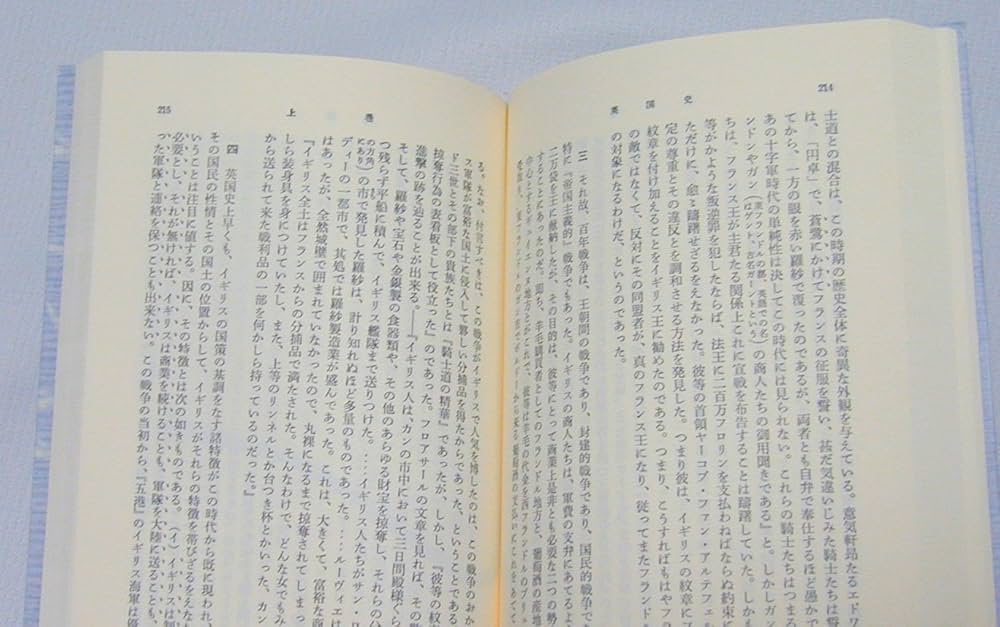 214
英国史
士道との混合は、この時期の歴史全体に奇異な外観を与えている。意気軒昂たるエドワ
は、「円卓」で、蒼鷺にかけてフランスの征服を誓い、甚だ気違いじみた騎士たちは誓
てから、一方の眼を赤い羅紗で覆ったのであるが、両者とも自弁で奉仕するほど愚かで
あの十字軍時代の単純性は決してこの時代には見られない。これらの騎士たちはつまる
ンドンやガン(東フランドルの都、英語での名はゲント、古名ガーントという)の商人たちの御用聞きである』と。しかしガン
ちは、フランス王が主君たる関係上これに宣戦を布告することは躊躇していた。しかし
等がかような叛逆罪を犯したならば、法王に二百万フロリンを支払わねばならぬ約束に
ただけに、愈〻躊躇せざるをえなかった。彼等の首領ヤーコブ・ファン・アルテフェル
定の尊重とその違反とを調和させる方法を発見した。つまり彼は、イギリスの紋章にフ
紋章を付け加えることをイギリス王に勧めたのである。つまり、こうすればもはやフラ
の敵ではなくて、反対にその同盟者が、真のフランス王になり、従ってまたフランドル
の対象になるわけだ、というのであった。
三 それ故、百年戦争は、王朝間の戦争であり、封建的戦争であり、国民的戦争であ
特に『帝国主義的』戦争でもあった。イギリスの商人たちは、軍費の支弁にあてるよう
二万袋を王に献納したが、その目的は、彼等にとって商業上是非とも必要な二つの勢
することにあったのだ。即ち、羊毛購買者としてのフランドル地方と、葡萄酒の産地
中心とするギュイエンヌ地方とがこれで、彼等は羊毛の代金を西フランドルのブリュ
215
上巻
る。なお、付言すべきは、この戦争がイギリスで人気を博したのは、この戦争のおか
ス軍隊が富裕な国土に侵入して夥しい分捕品を得たからであった、ということである
ド三世とその部下の貴族たちとは『騎士道の精華』であったが、しかし、『彼等の紋章
掠奪行為の表看板として役立った』のであった。フロアサールの文章を見れば、その
進撃の跡を辿ることが出来る。――『イギリス人はカンの市中において三日間殿様ぐら
そして、羅紗や宝石や金銀製の食器類や、その他のあらゆる財宝を掠奪し、それらの分
つ残らず平船に積んで、イギリス艦隊まで送りつけた。‥‥イギリス人たちがサン・ロ
の方角にあり)の市で発見した羅紗は、計り知れぬほど多量のものであった。‥‥ルーヴィエは
ディーの一都市で、其処では羅紗製造業が盛んであった。これは、大きくて、富裕な商
はあったが、全然城壁で囲まれていなかったので、丸裸になるまで掠奪されてしまっ
『イギリス全土はフランスからの分捕品で満たされた。そんなわけで、どんな女でもみ
しら装身具を身につけていたし、また、上等のリンネルとか台つき杯とかいった、カン
から送られて来た戦利品の一部を何かしら持っているのだった。』
四 英国史上早くも、イギリスの国策の基調をなす諸特徴がこの時代から既に現われ、
その国民の性情とその国土の位置からして、イギリスがそれらの特徴を帯びざるをえなか
いうことは注目に値する。因に、その特徴とは次の如きものである。(イ) イギリスは
必要とし、それが無ければ、イギリスは商業を続けることも、軍隊を大陸に送ることも、
った軍隊と連絡を保つことも出来ない。この戦争の当初から、『五港』のイギリス海軍は優